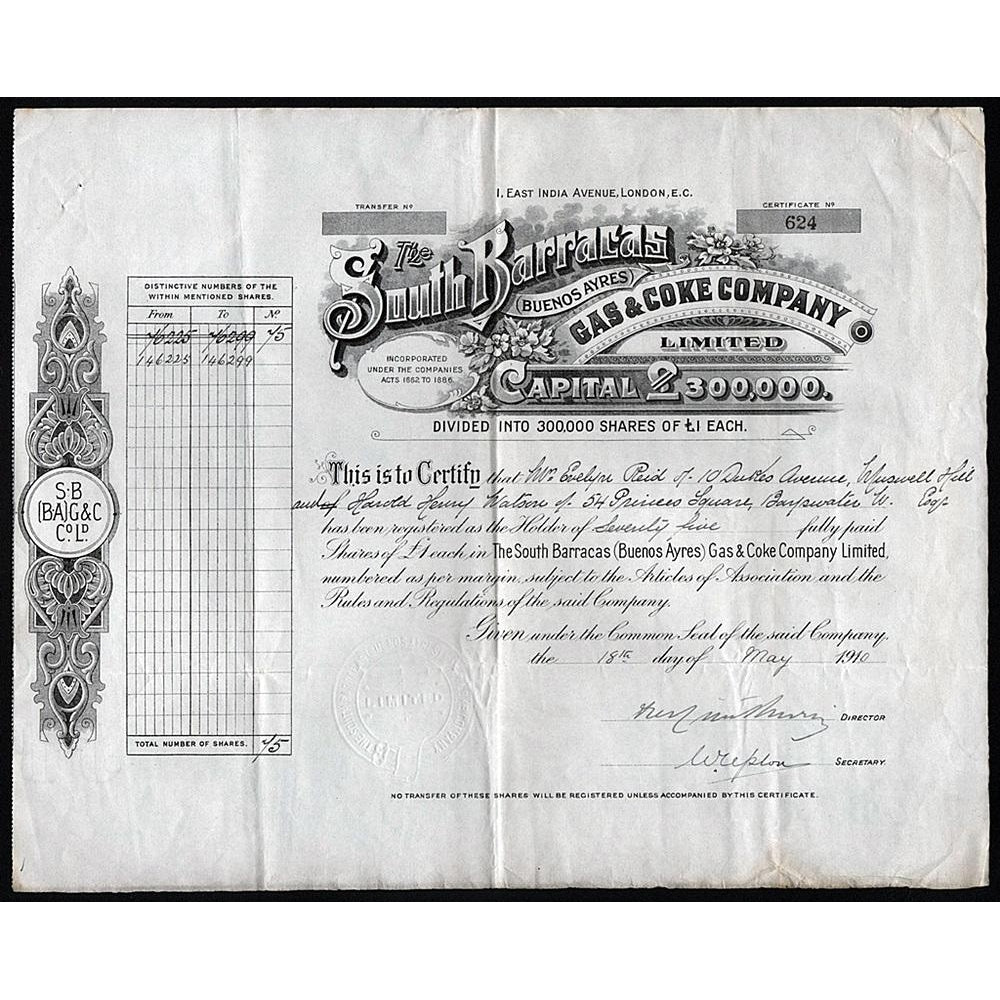 1, EAST INDIA AVENUE, LONDON, E.C.
TRANSFER Nº
CERTIFICATE Nº
624
The South Barracas
(BUENOS AYRES)
GAS & COKE COMPANY
LIMITED
INCORPORATED
UNDER THE COMPANIES
ACTS 1862 TO 1886
CAPITAL £300,000.
DIVIDED INTO 300,000 SHARES OF £1 EACH.
DISTINCTIVE NUMBERS OF THE
WITHIN MENTIONED SHARES.
From To Nº
76225 76299 75
146225 146299
S.B
(B.A)G&C
Cº Lᴰ
TOTAL NUMBER OF SHARES. 75
This is to Certify that Mrs Evelyn Reid of 10 Dukes Avenue, Muswell Hill
and Harold Henry Watson of 54 Princes Square, Bayswater W. Esqr
has been registered as the Holder of Seventy five fully paid
Shares of £1 each in The South Barracas (Buenos Ayres) Gas & Coke Company Limited,
numbered as per margin, subject to the Articles of Association and the
Rules and Regulations of the said Company.
Given under the Common Seal of the said Company,
the 18th day of May 1910
DIRECTOR
SECRETARY
LIMITED
NO TRANSFER OF THESE SHARES WILL BE REGISTERED UNLESS ACCOMPANIED BY THIS CERTIFICATE.